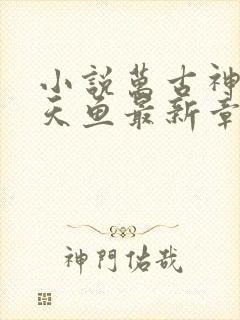 小說萬古神
天魚最新章
神門佑哉